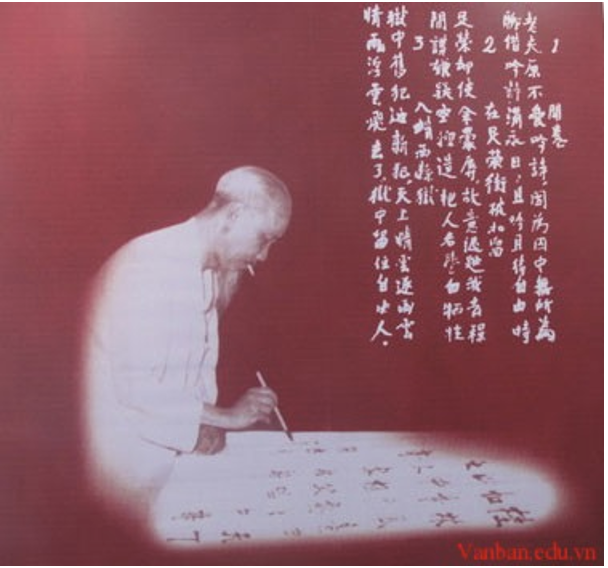 1 開卷
老夫原不愛吟詩,因為囚中無所為
聊借吟詩消永日,且吟且待自由時
2 在足榮街被扣留
足榮却使余蒙辱,故意遲延我去程
間諜嫌疑空捏造,把人名譽白犧牲
3 入靖西縣獄
獄中舊犯迎新犯,天上晴雲逐雨雲
晴雨浮雲飛去了,獄中留住自由人。
Vanban.edu.vn